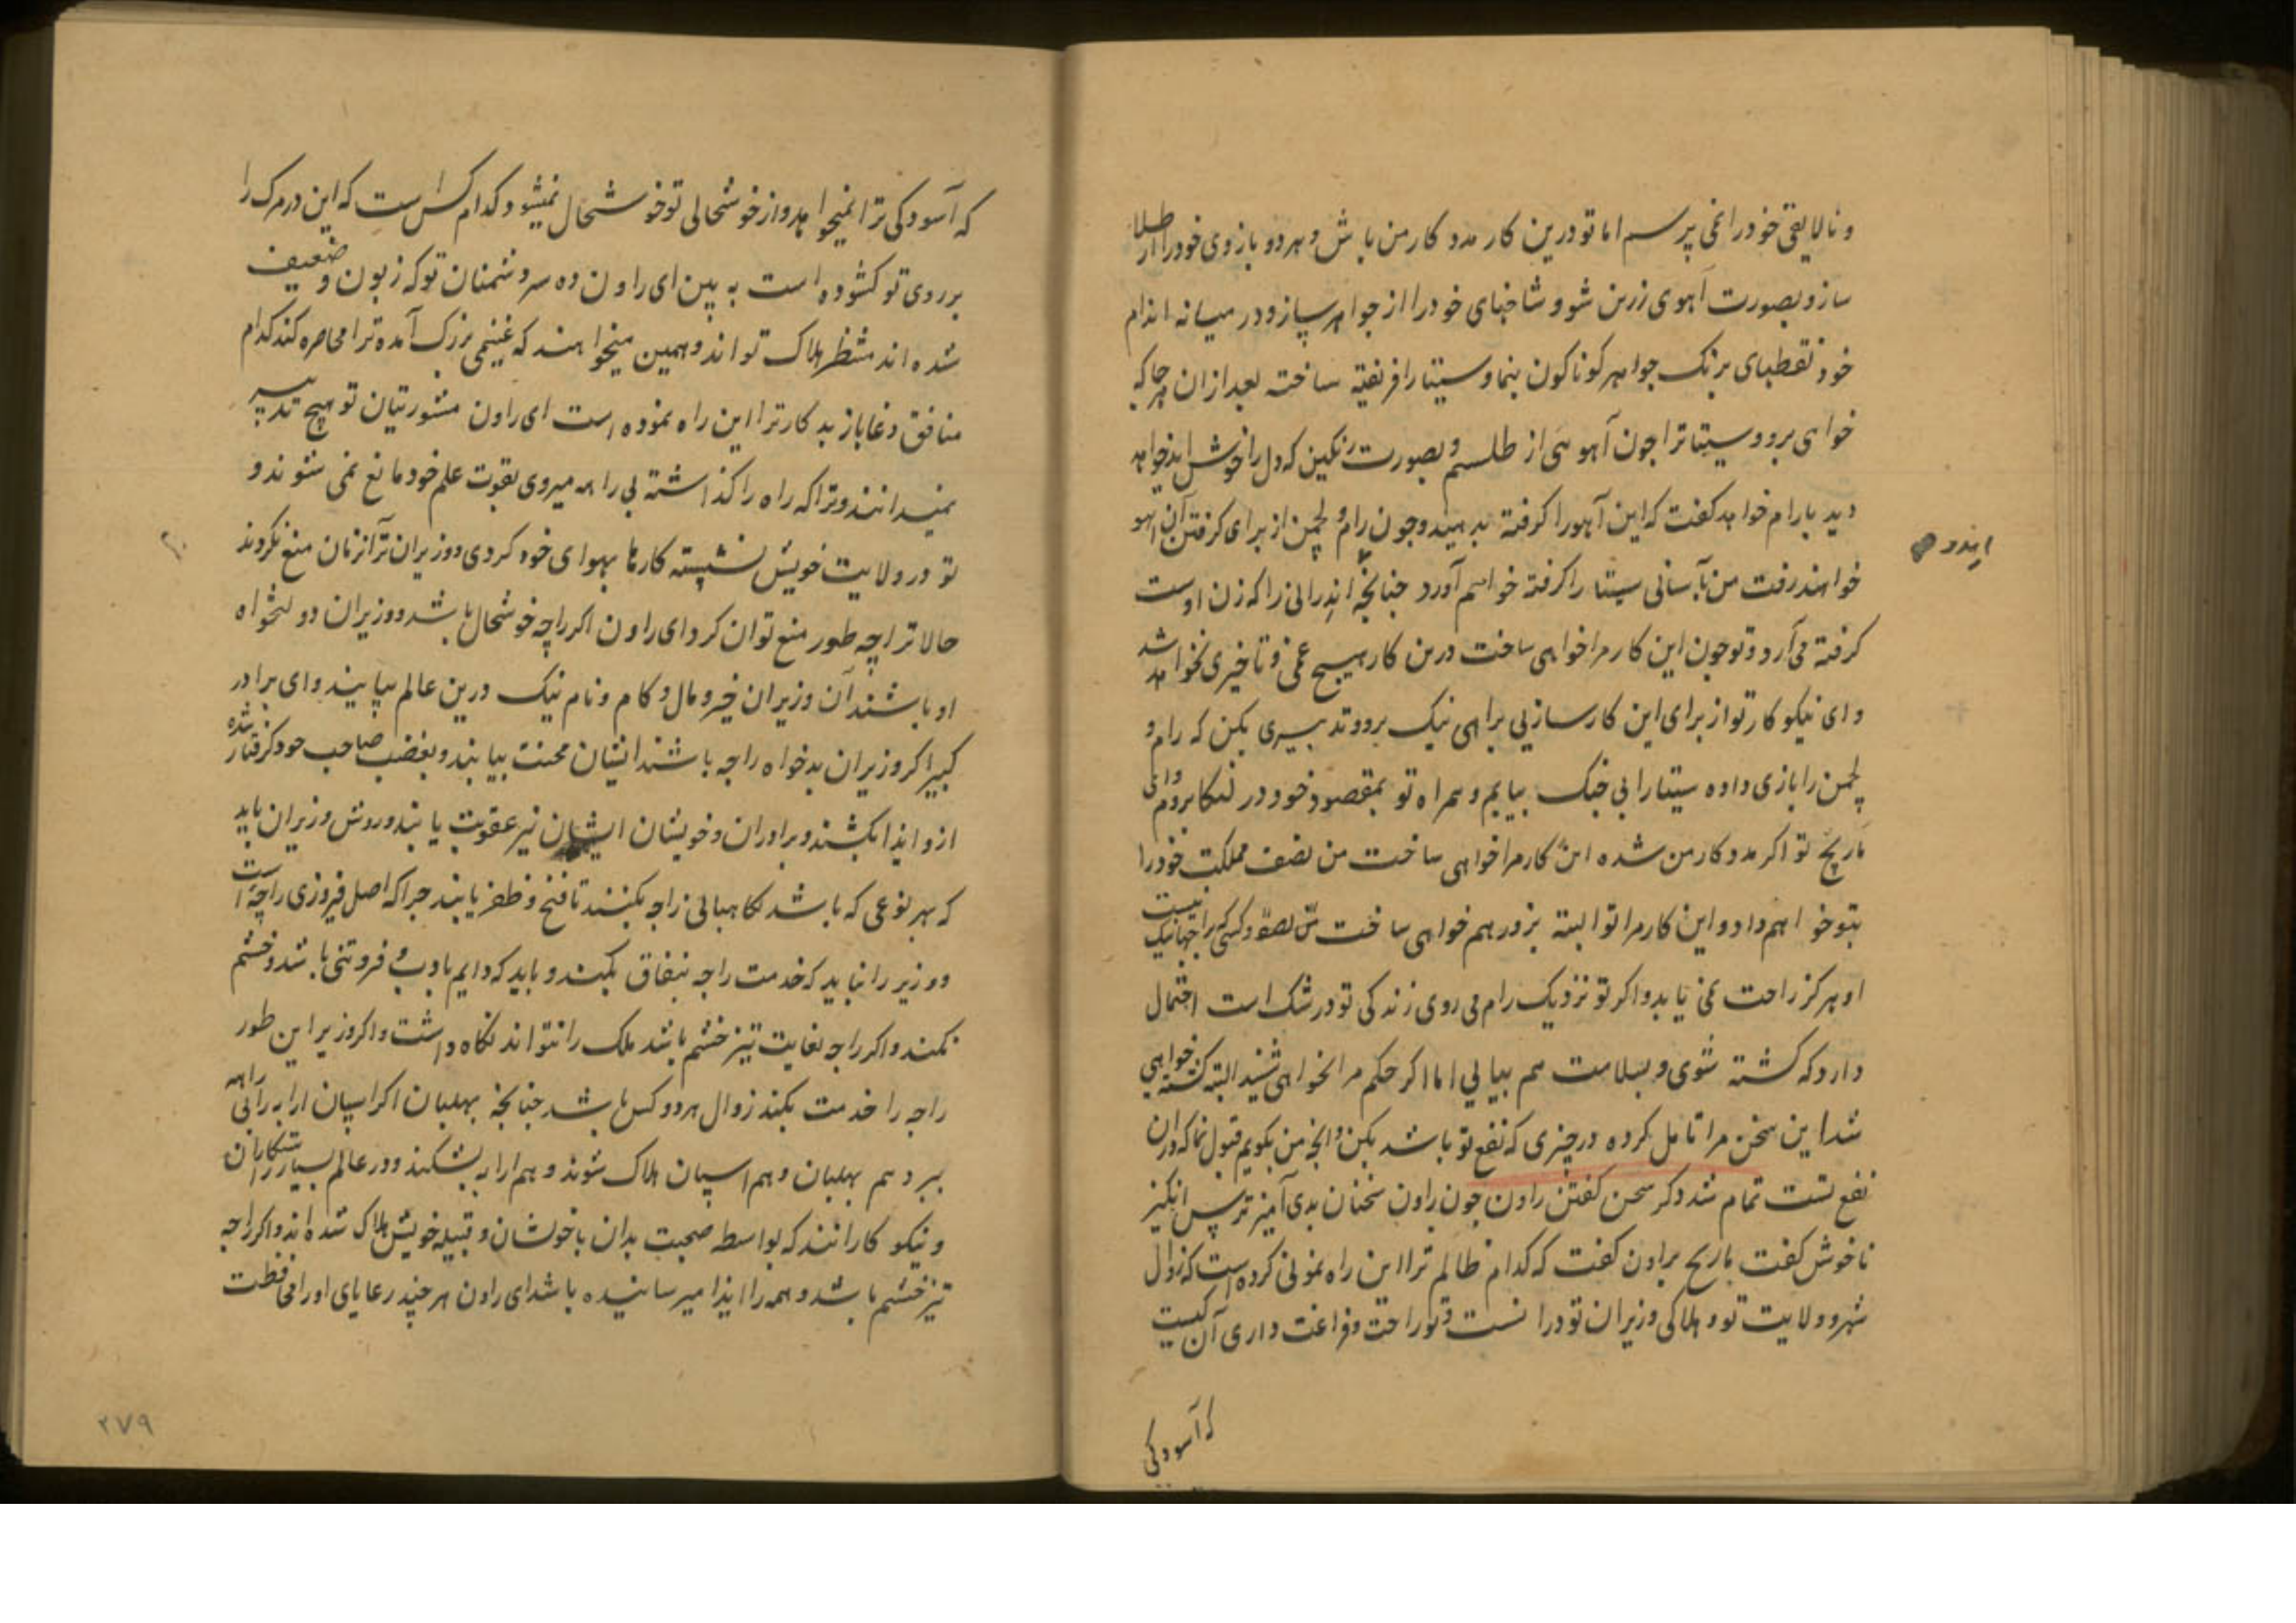 و نالایقی خود را نمی پرسم اما تو درین کار مدد کار من باش و هر دو بازوی خود را از طلا
ساز و بصورت آهوی زرین شو و شاخهای خود را از جواهر بساز و در میانه اندام
خود نقطهای برنک جواهر کوناکون بنما و سیتا را فریفته ساخته بعد از ان هر جا که
خواهی برو و سیتا ترا چون آهوی از طلسم و بصورت رنکین که دل را خوش آید خواهد
دید با رام خواهد کفت که این آهو را کرفته بدهید و چون رام و لچمن از برای کرفتن آن آهو
خواهند رفت من بآسانی سیتا را کرفته خواهم آورد چنانچه اندرانی را که زن اوست
ایندر
کرفته می آرد و تو چون این کار مرا خواهی ساخت درین کار هیچ غمی و تاخیری نخواهد شد
و ای نیکو کار تو از برای این کارسازیی براهی نیک برو و تدبیری بکن که رام و
لچمن را بازی داده سیتا را بی جنک بیابم و همراه تو بمقصود خود در لنکا بروم و ای
ماریچ تو اکر مدد کار من شده این کار مرا خواهی ساخت من نصف مملکت خود را
بتو خواهم داد و این کار مرا تو البته بزور هم خواهی ساخت
او هرکز راحت نمی یابد و اکر تو نزدیک رام می روی زندکی تو در شک است احتمال
دارد که کشته شوی و بسلامت هم بیایی اما اکر حکم مرا نخواهی شنید البته کشته خواهی
شد این سخن مرا تامل کرده در چیزی که نفع تو باشد بکن و آنچه من بکویم قبول نما که در آن
نفع تست تمام شد ذکر سخن کفتن راون چون راون سخنان بدی آمیز ترس انکیز
ناخوش کفت ماریچ براون کفت که کدام ظالم ترا این راه نمونی کرده است که زوال
شهر و ولایت تو و هلاکی وزیران تو درانست و تو راحت و فراغت داری آن کیست
که آسودکی
که آسودکی ترا نمیخواهد و از خوشحالی تو خوشحال نمیشود و کدام کس است که این در مرک را
بر روی تو کشوده است به بین ای راون ده سر دشمنان تو که زبون و ضعیف
شده اند منتظر هلاک تو اند و همین میخواهند که غنیمی بزرک آمده ترا محاصره کند کدام
منافق دغاباز بد کار ترا این راه نموده است ای راون مشورتیان تو هیچ تدبیر
نمیدانند و ترا که راه را کذاشته بی راهه میروی بقوت علم خود مانع نمی شوند و
تو در ولایت خویش نشسته کارها بهوای خود کردی و وزیران ترا از ان منع نکردند
حالا ترا چه طور منع توان کرد ای راون اکر راجه خوشحال باشد و وزیران دولتخواه
او باشند آن وزیران خیر و مال و کام و نام نیک درین عالم بیابند و ای برادر
کبیر اکر وزیران بدخواه راجه باشند انشان محنت بیابند و بغضب صاحب خود کرفتار شده
ازو ایذا بکشند و برادران و خویشان ایشان نیز عقوبت یابند و روش وزیران باید
که بهر نوعی که باشد نکاهبانی راجه بکنند تا فتح و ظفر یابند چرا که اصل فیروزی راجه است
و وزیر را نباید که خدمت راجه بنفاق بکند و باید که دایم با ادب و فروتنی باشد و خشم
نکند و اکر راجه بغایت تیز خشم باشد ملک را نتواند نکاه داشت و اکر وزیر این طور
راجه را خدمت بکند زوال هر دو کس باشد چنانچه بهلبان اکر اسپان ارابه را بی راهه
ببرد هم بهلبان و هم اسپان هلاک شوند و هم ارابه بشکند و در عالم بسیار راستکاران
و نیکو کارانند که بواسطه صحبت بدان با خوشان و قبیله خویش هلاک شده اند و اکر راجه
تیز خشم باشد و همه را ایذا میرسانیده باشد ای راون هر چند رعایای او را محافظت
۲۷۹